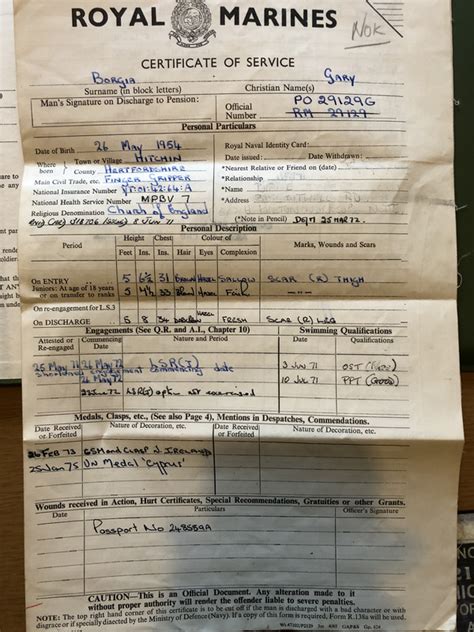 ROYAL MARINES
NoK
CERTIFICATE OF SERVICE
Borgia Gary
Surname (in block letters) Christian Name(s)
Man's Signature on Discharge to Pension: Official Number PO 29129G
RM 29129
Personal Particulars
Date of Birth 26 May 1954 Royal Naval Identity Card:
Date issued: Date Withdrawn:
Where born Town or Village HITCHIN
County HERTFORDSHIRE *Nearest Relative or Friend on (date)
Main Civil Trade, etc. *Relationship
National Insurance Number *Name
National Health Service Number MPBV 7
Religious Denomination Church of England
(*Note in Pencil) 25 MAR 72
Personal Description
Period Height Chest Colour of Marks, Wounds and Scars
Ft. Ins. Ins. Hair Eyes Complexion
On ENTRY 5 6½ 31 BROWN HAZEL SALLOW SCAR (R) THIGH
Juniors: At age of 18 years or on transfer to ranks 5 33 Brown Hazel
On re-engagement for L.S.3
On DISCHARGE 5 8 34 FRESH SCAR (R) LEG
Engagements (See Q.R. and A.I., Chapter 10) Swimming Qualifications
Attested or Re-engaged Commencing Date Nature and Period Date Qualifications
25 May 72 26 May 72 LSR(T) 3 JUN 71 OST
engagement commencing date
26 May 72 10 Jul 71 PPT (Good)
LSR(T) option not exercised
Medals, Clasps, etc., (See also Page 4), Mentions in Despatches, Commendations.
Date Received or Forfeited Nature of Decoration, etc. Date Received or Forfeited Nature of Decoration, etc.
26 FEB 73 GSM and CLASP N. IRELAND
25 Jan 75 UN Medal 'Cyprus'
Wounds received in Action, Hurt Certificates, Special Recommendations, Gratuities or other Grants.
Date Particulars Officer's Signature
Passport No 248589A
CAUTION—This is an Official Document. Any alteration made to it
without proper authority will render the offender liable to severe penalties.
NOTE: The top right hand corner of this certificate is to be cut off if the man is discharged with a bad character or with
disgrace or if specially directed by the Ministry of Defence (Navy). If a copy of this form is required, Form K.138a will be used.